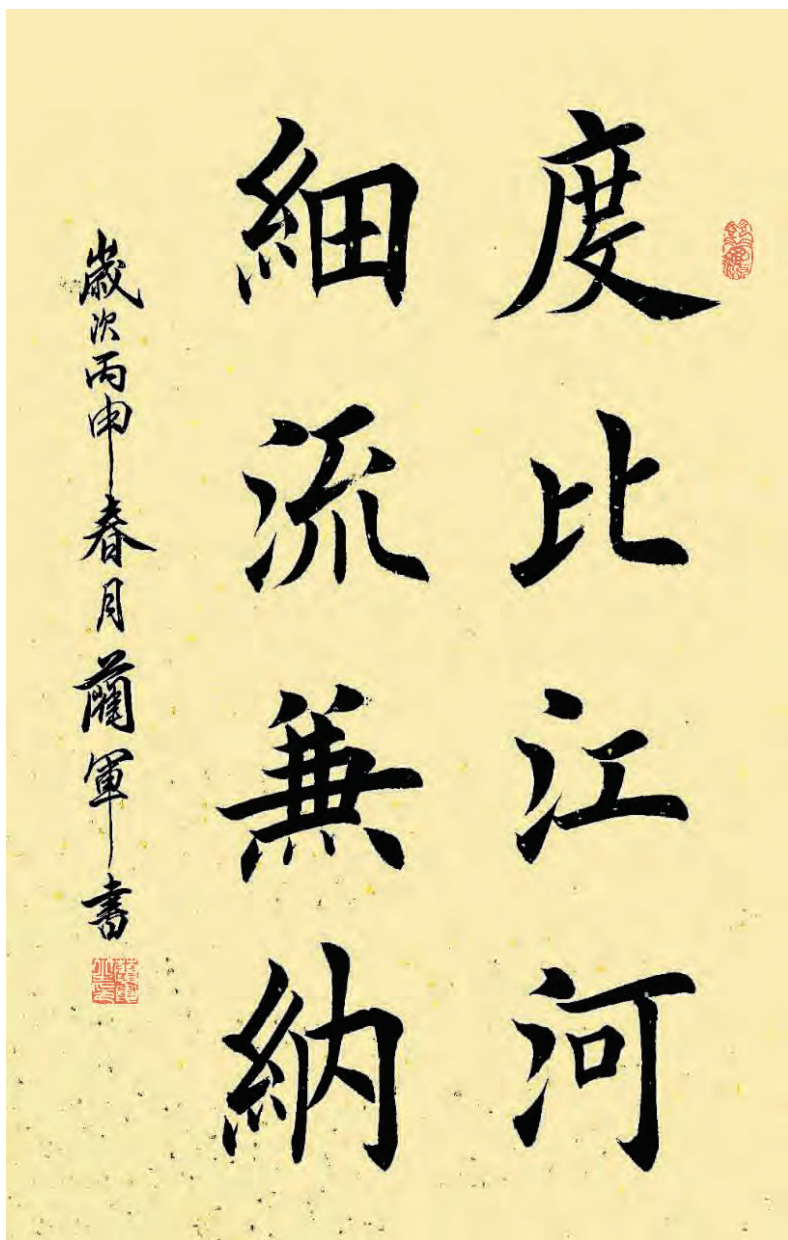 度比江河
細流兼納
歲次丙申春月蘭軍書